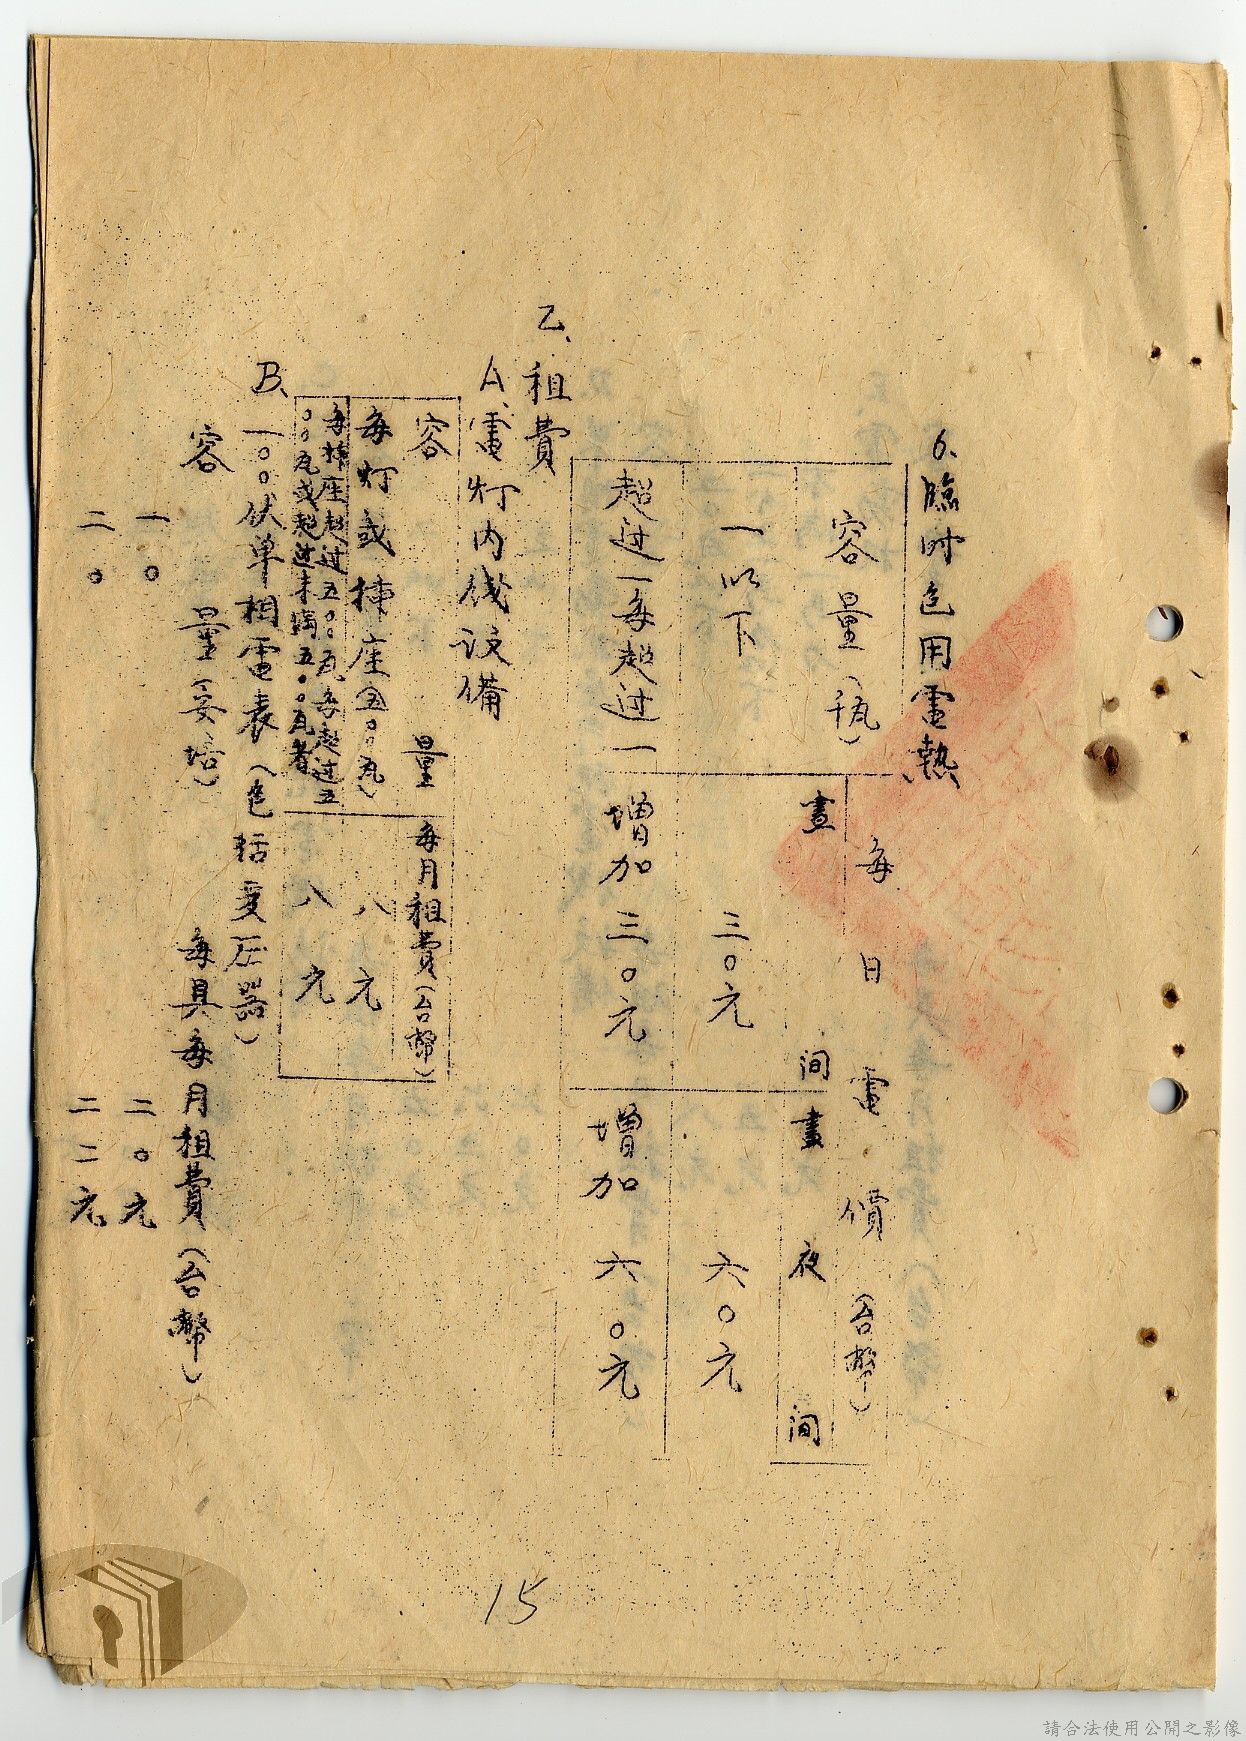 6.臨时包用電熱
容量(瓩) 每日電價(台幣)
晝間 晝夜間
一以下 三〇元 六〇元
超过一每超过一 增加三〇元 增加六〇元
乙、租費
A、電灯内线設備
容量 每月租費(台幣)
每灯或揷座(五〇〇瓦) 八元
每揷座超过五〇〇瓦每超过五
〇〇瓦或超过未滿五〇〇瓦者 八元
B、一〇〇伏单相電表(包括变圧器)
容量(安培) 每具每月租費(台幣)
一〇 二〇元
二〇 二二元
15
請合法使用公開之影像